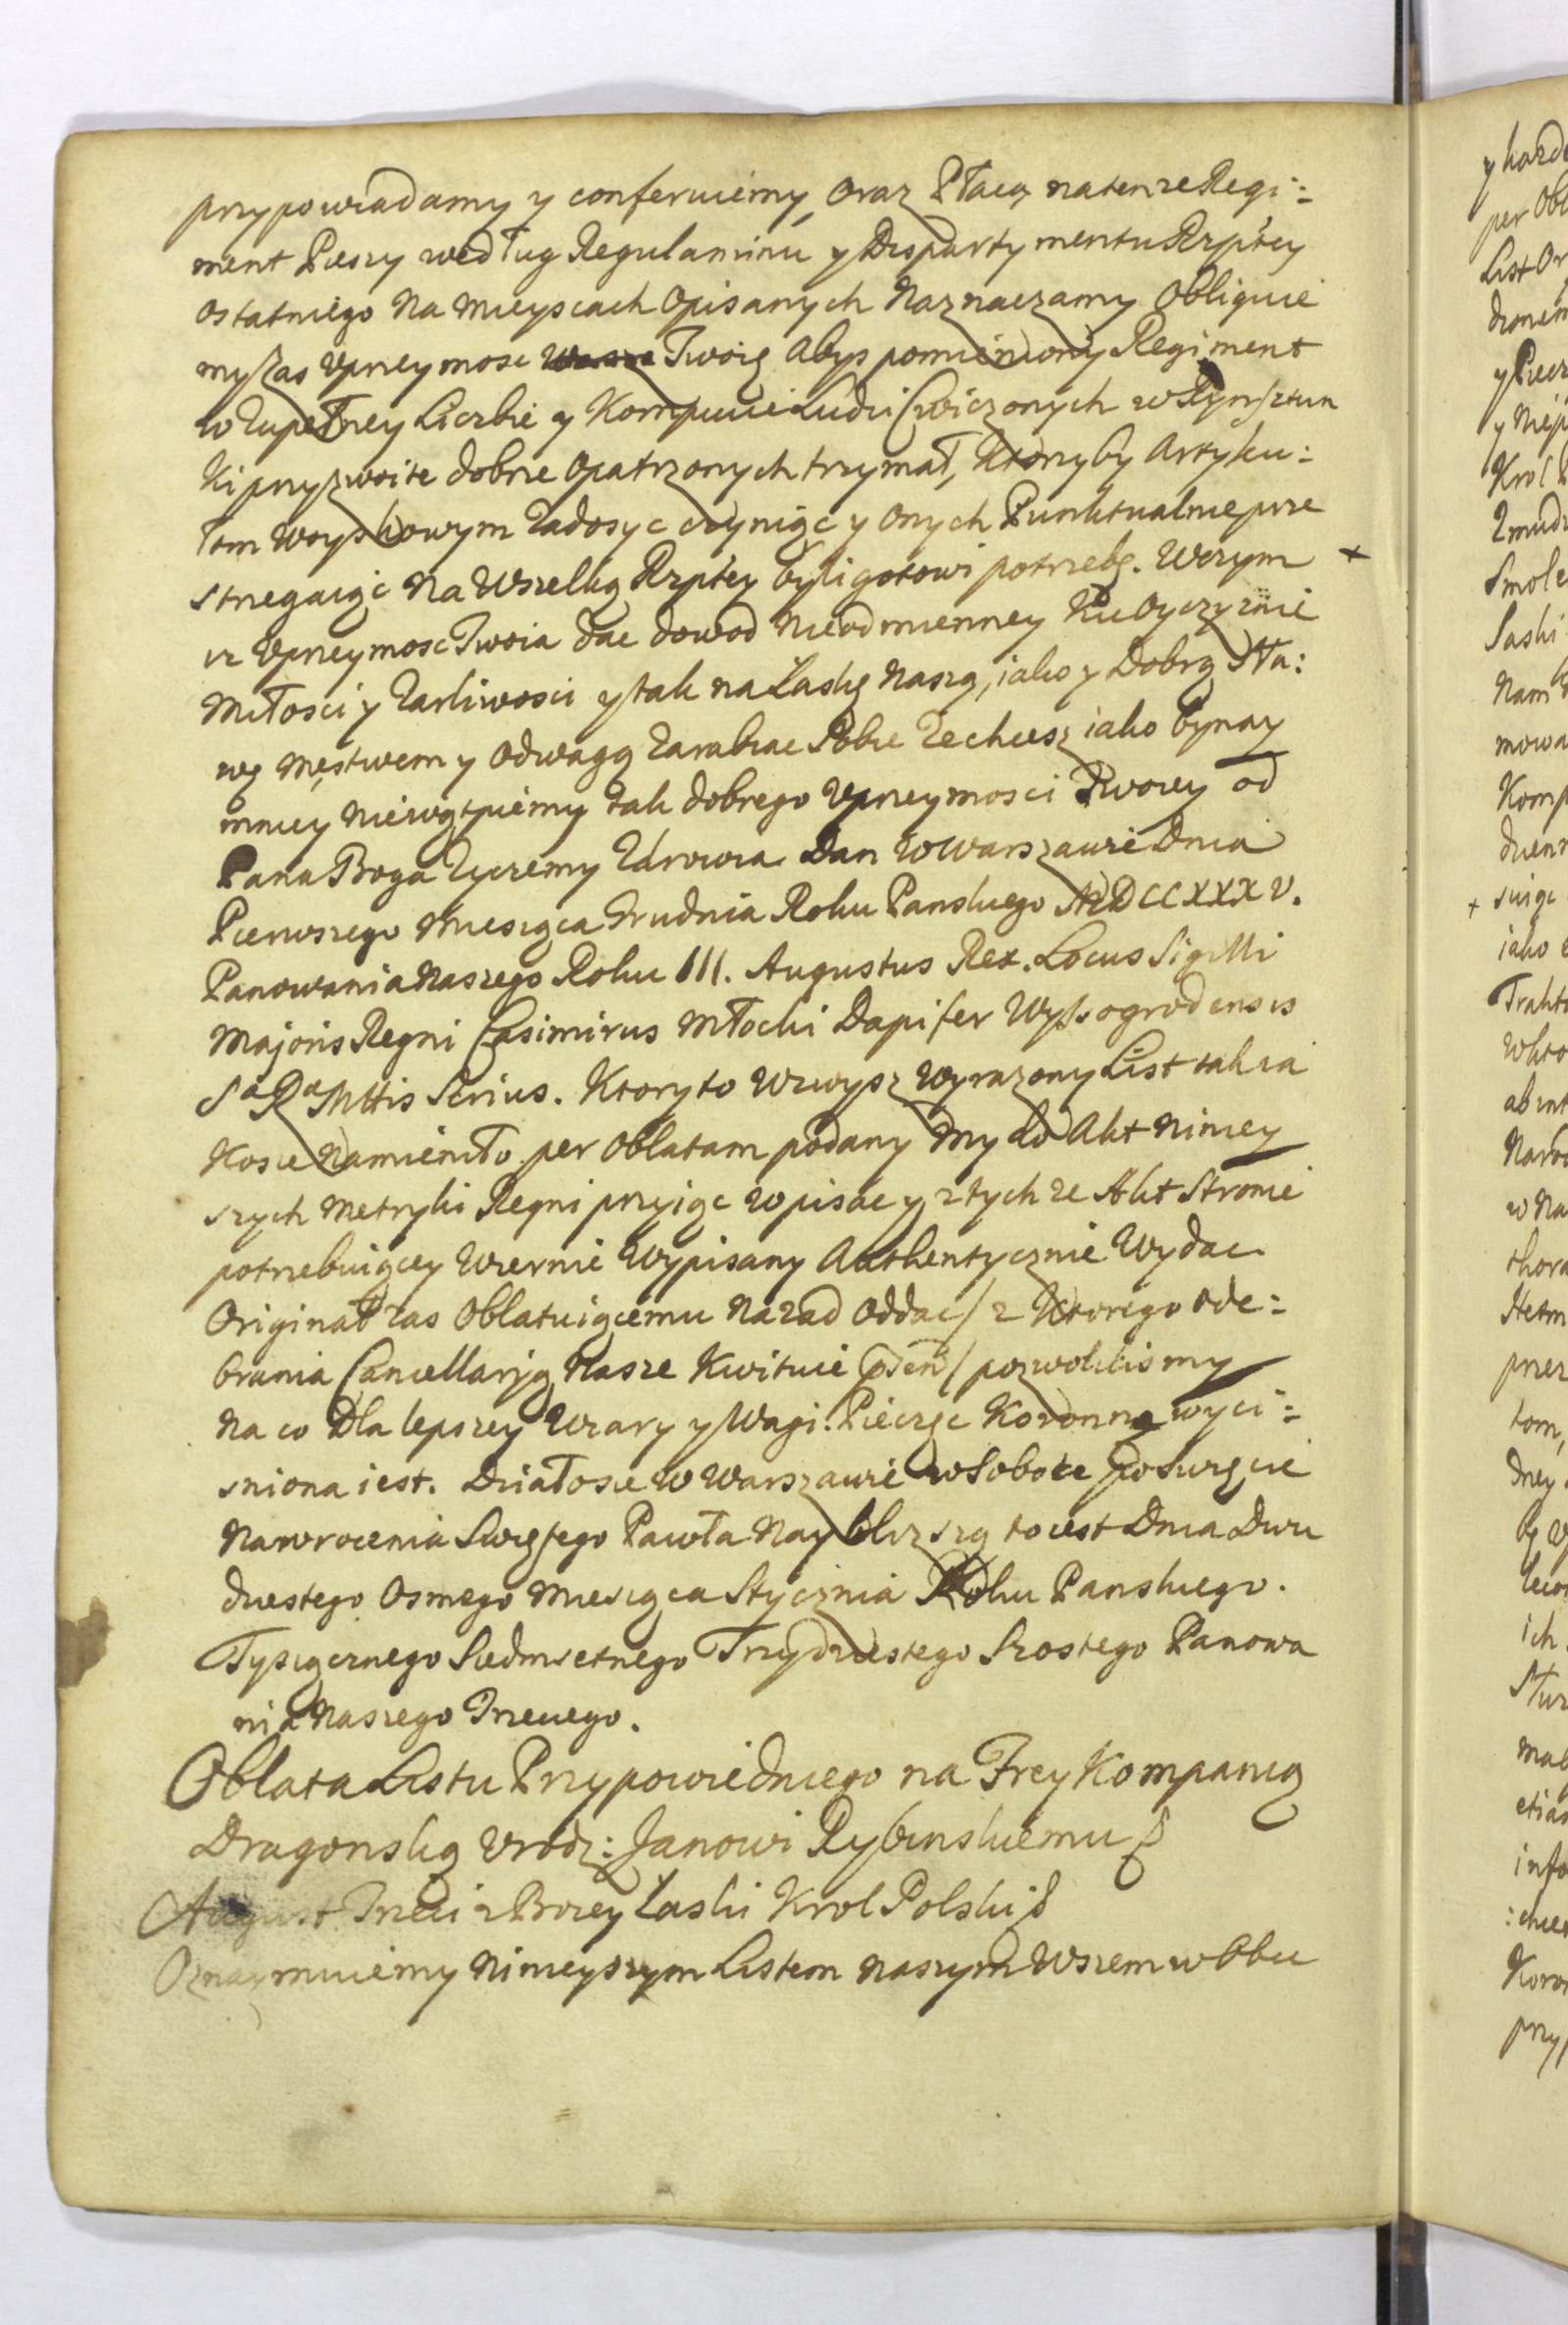 przypowiadamy y conferuiemy, oraz Płacą natenże Regi:
ment Pieszy według Regulaminu y Dispartymentu Rzptey
ostatniego Na mieyscach Opisanych Naznaczamy Obliguie
my zas Vprzeymosc Twoię Abys pomieniony Regiment
w Zupełney Liczbie y Kompucie Ludzi Cwiczonych w Rynsztun
ki przyzwoite dobrze Opatrzonych trzymał, Ktoryby Artyku:
łom Woyskowym Zadosyc czyniąc y Onych Punktualnie prze
strzegaiąc Na Wszelką Rzptey byli gotowi potrzebę. Wczym +
iż Vprzeymosc Twoia dac dowod Nieodmienney Ku Oyczyznie
Miłosci y Zarliwosci y tak na Łaskę Naszą, iako y Dobrą Sła:
wę męstwem y Odwagą Zarabiac Sobie Zechcesz iako bynay
mniey Niewątpiemy tak dobrego Vprzeymosci Twoiey od
Pana Boga Zyczemy Zdrowia Dan W Warszawie Dnia
Pierwszego Miesiąca Grudnia Roku Panskiego MDCCXXXV.
Panowania Naszego Roku III. Augustus Rex. Locus Sigilli
Majoris Regni Casimirus Młocki Dapifer Wyssogrodensis
Sa Ra Mttis Scrius. Ktory to Wzwysz Wyrazony List takia
Kosie Namieniło per Oblatam podany My do Akt Niniey
szych Metryki Regni przyiąc wpisac y z tychze Akt Stronie
potrzebuiącey Wiernie Wypisany Authentycznie Wydac
Originał zas Oblatuiącemu Nazad Oddac / z Ktorego ode:
brania Cancellaryą Nasze Kwituie / pozwolilismy
Na co Dla lepszey Wiary y Wagi. Pieczęc Koronna wyci:
sniona iest. Działosie W Warszawie w Sobote po Swięcie
Nawrocenia Swiętego Pawła Nayblizszą to iest Dnia Dwu
dziestego Osmego Miesiąca Stycznia Roku Panskiego.
Tysiącznego Siedmsetnego Trzydziestego Szostego Panowa
nia Naszego Trzeciego.
Oblata Listu Przypowiedniego na Frey Kompanią
Dragonską Vrodz: Janowi Rybinskiemu
August Trzeci z Bozey Łaski Krol Polski
Oznaymuiemy Ninieyszym Listem Naszym Wszem w Obec